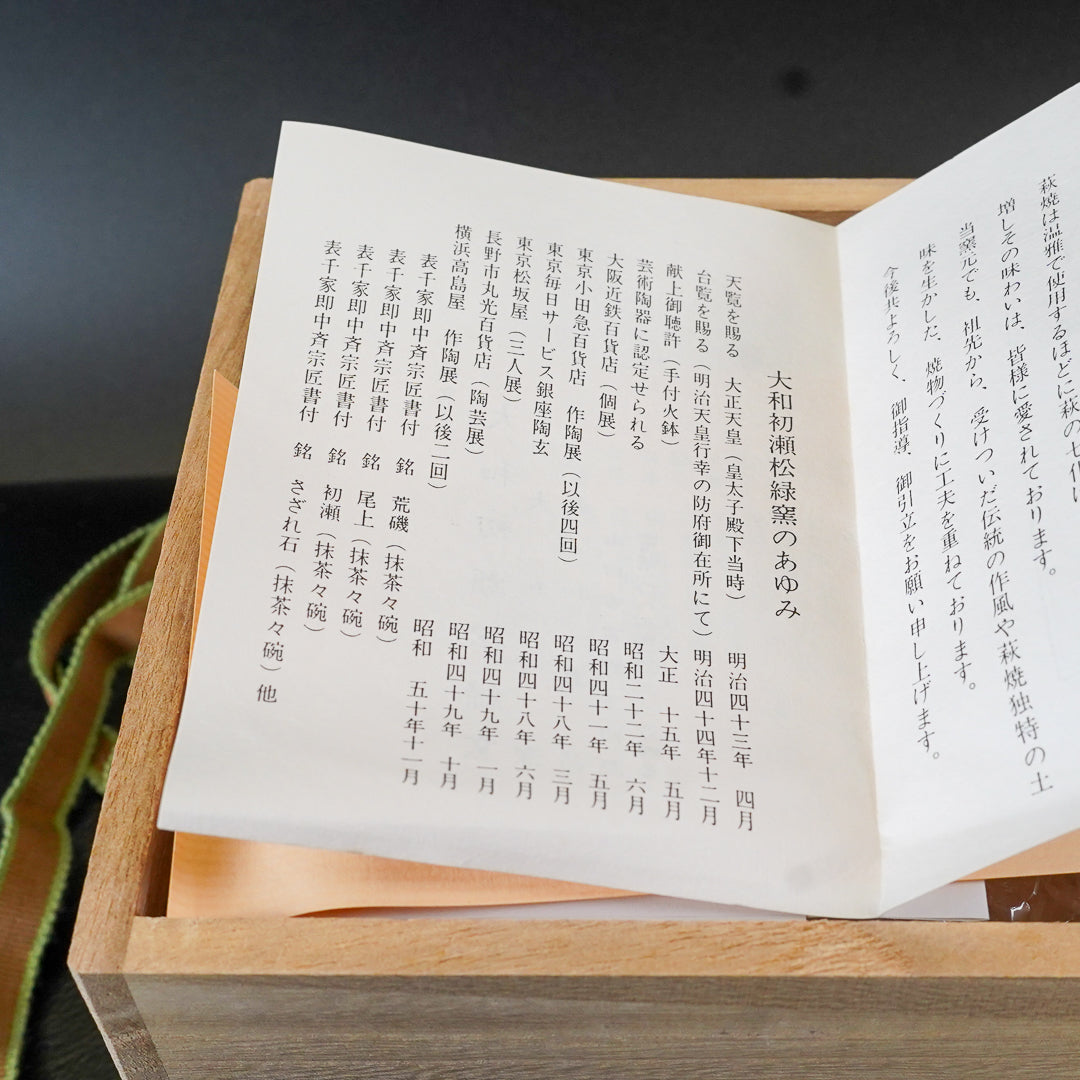 萩焼は温雅で使用するほどに萩の七化
増しその味わいは、皆様に愛されております。
当窯元でも、祖先から、受けついだ伝統の作風や萩焼独特の土
味を生かした、焼物づくりに工夫を重ねております。
今後共よろしく、御指導、御引立をお願い申し上げます。
大和初瀬松緑窯のあゆみ
天覧を賜る　大正天皇（皇太子殿下当時）　明治四十三年　四月
台覧を賜る（明治天皇行幸の防府御在所にて）明治四十四年十二月
献上御聴許（手付火鉢）　大正　十五年　五月
芸術陶器に認定せられる　昭和二十二年　六月
大阪近鉄百貨店（個展）　昭和四十一年　五月
東京小田急百貨店　作陶展（以後四回）　昭和四十八年　三月
東京毎日サービス銀座陶玄　昭和四十八年　六月
東京松坂屋（三人展）　昭和四十九年　一月
長野市丸光百貨店（陶芸展）　昭和四十九年　十月
横浜高島屋　作陶展（以後二回）　昭和　五十年十一月
表千家即中斉宗匠書付　銘　荒磯（抹茶々碗）
表千家即中斉宗匠書付　銘　尾上（抹茶々碗）
表千家即中斉宗匠書付　銘　初瀬（抹茶々碗）
表千家即中斉宗匠書付　銘　さざれ石（抹茶々碗）他